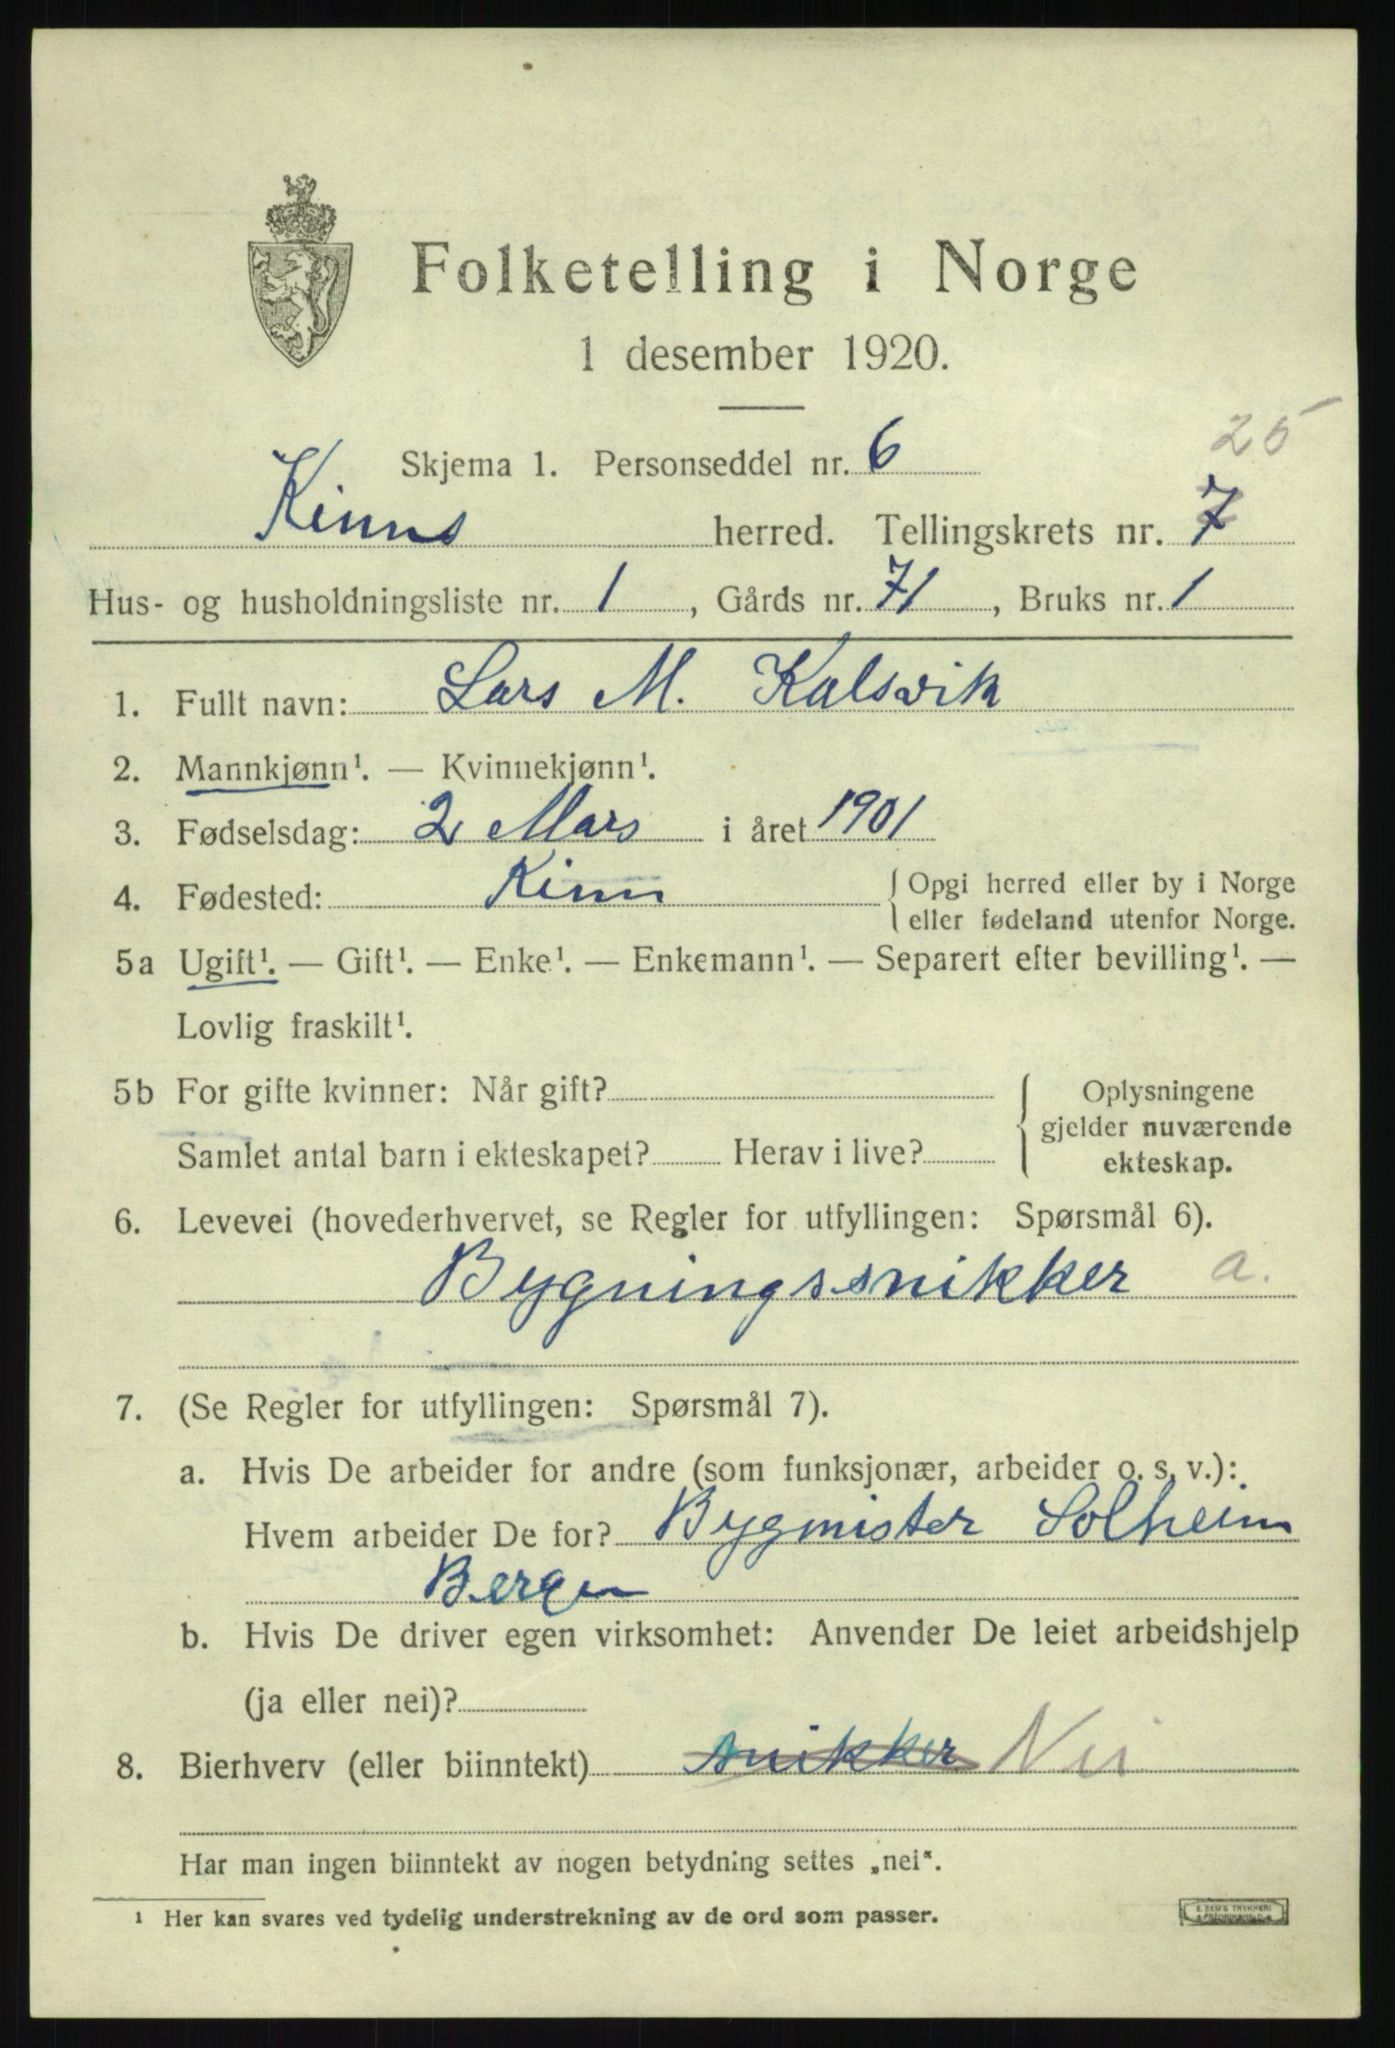 Folketelling i Norge
1 desember 1920.
25
Skjema 1. Personseddel nr. 6
Kinns herred. Tellingskrets nr. 7
Hus- og husholdningsliste nr. 1, Gårds nr. 71, Bruks nr. 1
1. Fullt navn: Lars M. Kalsvik
2. Mannkjønn¹. — Kvinnekjønn¹.
3. Fødselsdag: 2 Mars i året 1901
4. Fødested: Kinn { Opgi herred eller by i Norge
eller fødeland utenfor Norge.
5a Ugift¹. — Gift¹. — Enke¹. — Enkemann¹. — Separert efter bevilling¹. —
Lovlig fraskilt¹.
5b For gifte kvinner: Når gift? { Oplysningene
gjelder nuværende
Samlet antal barn i ekteskapet? Herav i live? ekteskap.
6. Levevei (hovederhvervet, se Regler for utfyllingen: Spørsmål 6).
Bygningssnikker a.
7. (Se Regler for utfyllingen: Spørsmål 7).
a. Hvis De arbeider for andre (som funksjonær, arbeider o. s. v.):
Hvem arbeider De for? Bygmister Solheim
Bergen
b. Hvis De driver egen virksomhet: Anvender De leiet arbeidshjelp
(ja eller nei)?
8. Bierhverv (eller biinntekt) snikker Nei
Har man ingen biinntekt av nogen betydning settes „nei".
¹ Her kan svares ved tydelig understrekning av de ord som passer.